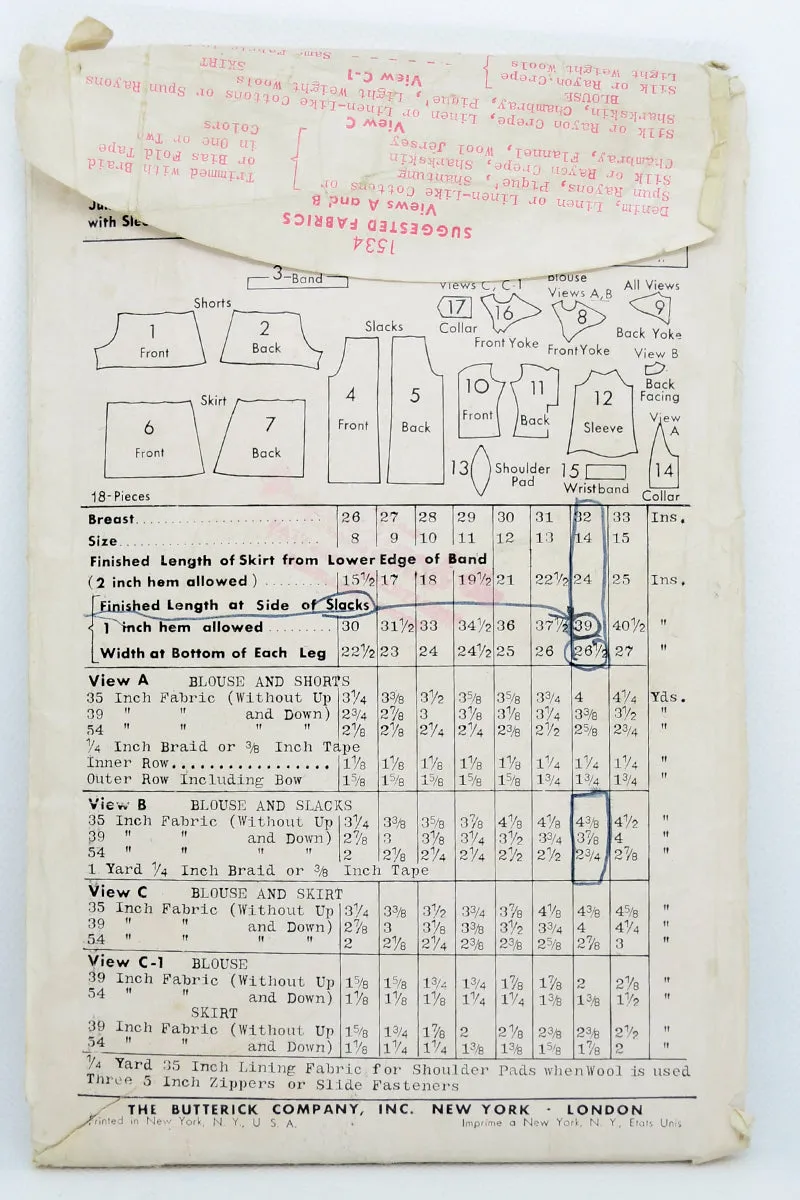 1534
SUGGESTED FABRICS
Views A and B
Denim, Linen or Linen-Like Cottons or
Spun Rayons, Pique', Shantung
Silk or Rayon Crepe, Sharkskin
Chambray, Flannel, Wool Jersey
Trimmed with Braid
or Bias Fold Tape
in One or Two
Colors
View C
Silk or Rayon Crepe, Linen or Linen-Like Cottons or Spun Rayons
Sharkskin, Chambray, Pique', Light Weight Wools
View C-1
BLOUSE
Silk or Rayon Crepe
Light Weight Wools
SKIRT
with
3-Band
Shorts
1
Front
2
Back
Slacks
4
Front
5
Back
Views C, C-1
17
Collar
16
Front Yoke
Blouse
Views A,B
8
Front Yoke
All Views
9
Back Yoke
Skirt
6
Front
7
Back
10
Front
11
Back
12
Sleeve
View B
Back
Facing
View
A
14
Collar
13
Shoulder
Pad
15
Wristband
18-Pieces
Breast 26 27 28 29 30 31 32 33 Ins.
Size 8 9 10 11 12 13 14 15
Finished Length of Skirt from Lower Edge of Band
(2 inch hem allowed) 15½ 17 18 19½ 21 22½ 24 25 Ins.
Finished Length at Side of Slacks
1 inch hem allowed 30 31½ 33 34½ 36 37½ 39 40½ "
Width at Bottom of Each Leg 22½ 23 24 24½ 25 26 26½ 27 "
View A BLOUSE AND SHORTS
35 Inch Fabric (Without Up 3¼ 3⅜ 3½ 3⅝ 3⅝ 3¾ 4 4¼ Yds.
39 " " and Down) 2¾ 2⅞ 3 3⅛ 3⅛ 3¼ 3⅜ 3½ "
54 " " " " 2⅛ 2⅛ 2¼ 2¼ 2⅜ 2½ 2⅝ 2¾ "
¼ Inch Braid or ⅜ Inch Tape
Inner Row................ 1⅛ 1⅛ 1⅛ 1⅛ 1⅛ 1¼ 1¼ 1¼ "
Outer Row Including Bow 1⅝ 1⅝ 1⅝ 1⅝ 1⅝ 1¾ 1¾ 1¾ "
View B BLOUSE AND SLACKS
35 Inch Fabric (Without Up 3¼ 3⅜ 3⅝ 3⅞ 4⅛ 4⅛ 4⅜ 4½ "
39 " " and Down) 2⅞ 3 3⅛ 3¼ 3½ 3¾ 3⅞ 4 "
54 " " " " 2 2⅛ 2¼ 2¼ 2½ 2½ 2¾ 2⅞ "
1 Yard ¼ Inch Braid or ⅜ Inch Tape
View C BLOUSE AND SKIRT
35 Inch Fabric (Without Up 3¼ 3⅜ 3½ 3¾ 3⅞ 4⅛ 4⅜ 4⅝ "
39 " " and Down) 2⅞ 3 3⅛ 3⅜ 3½ 3¾ 4 4¼ "
54 " " " " 2 2⅛ 2¼ 2⅜ 2⅜ 2⅝ 2⅞ 3 "
View C-1 BLOUSE
39 Inch Fabric (Without Up 1⅝ 1⅝ 1¾ 1¾ 1⅞ 1⅞ 2 2⅛ "
54 " " and Down) 1⅛ 1⅛ 1⅛ 1¼ 1¼ 1⅜ 1⅜ 1½ "
SKIRT
39 Inch Fabric (Without Up 1⅝ 1¾ 1⅞ 2 2⅛ 2⅜ 2⅜ 2½ "
54 " " and Down) 1⅛ 1¼ 1¼ 1⅜ 1⅜ 1⅝ 1⅞ 2 "
¼ Yard 35 Inch Lining Fabric for Shoulder Pads when Wool is used
Three 5 Inch Zippers or Slide Fasteners
THE BUTTERICK COMPANY, INC. NEW YORK · LONDON
Printed in New York, N. Y., U. S. A.
Imprime a New York, N. Y., Etats Unis